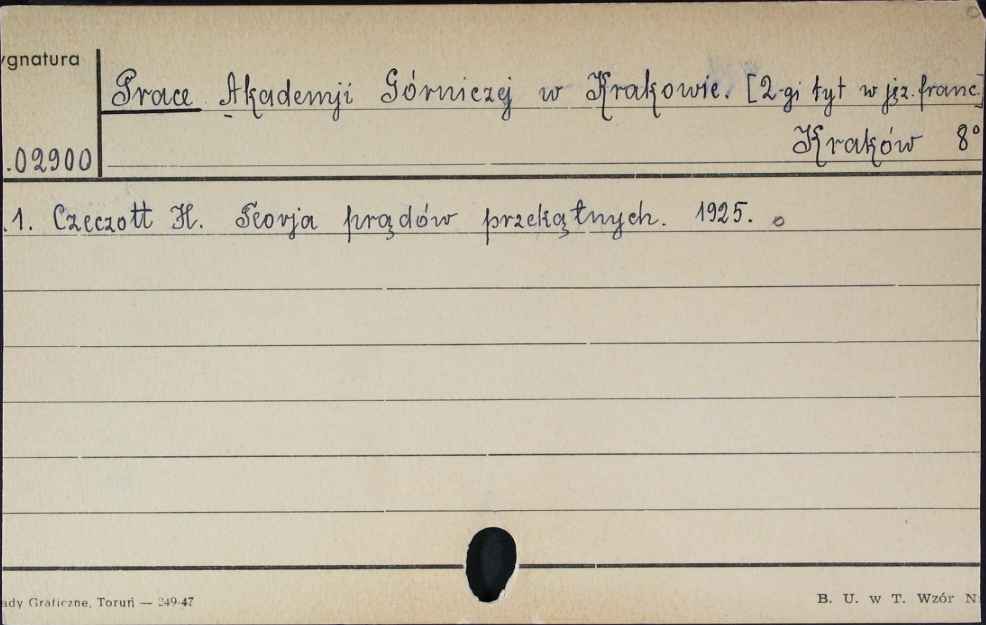 ygnatura
Prace Akademji Górniczej w Krakowie. [2-gi tyt w jęz. franc]
Kraków 8°
.02900
.1. Czeczott H. Teorja prądów przekątnych. 1925.
ady Graficzne, Toruń — 249-47
B. U. w T. Wzór N